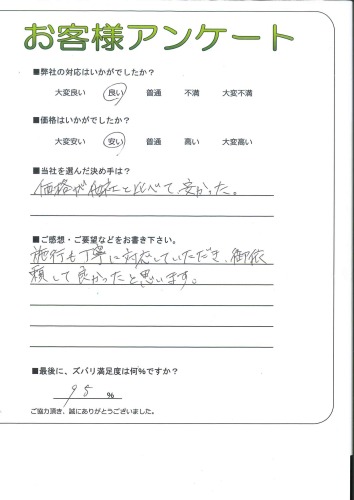 お客様アンケート
■弊社の対応はいかがでしたか？
大変良い 良い 普通 不満 大変不満
■価格はいかがでしたか？
大変安い 安い 普通 高い 大変高い
■当社を選んだ決め手は？
価格が他社と比べて、安かった。
■ご感想・ご要望などをお書き下さい。
施行も丁寧に対応していただき、御依
頼して良かったと思います。
■最後に、ズバリ満足度は何%ですか？
95 %
ご協力頂き、誠にありがとうございました。